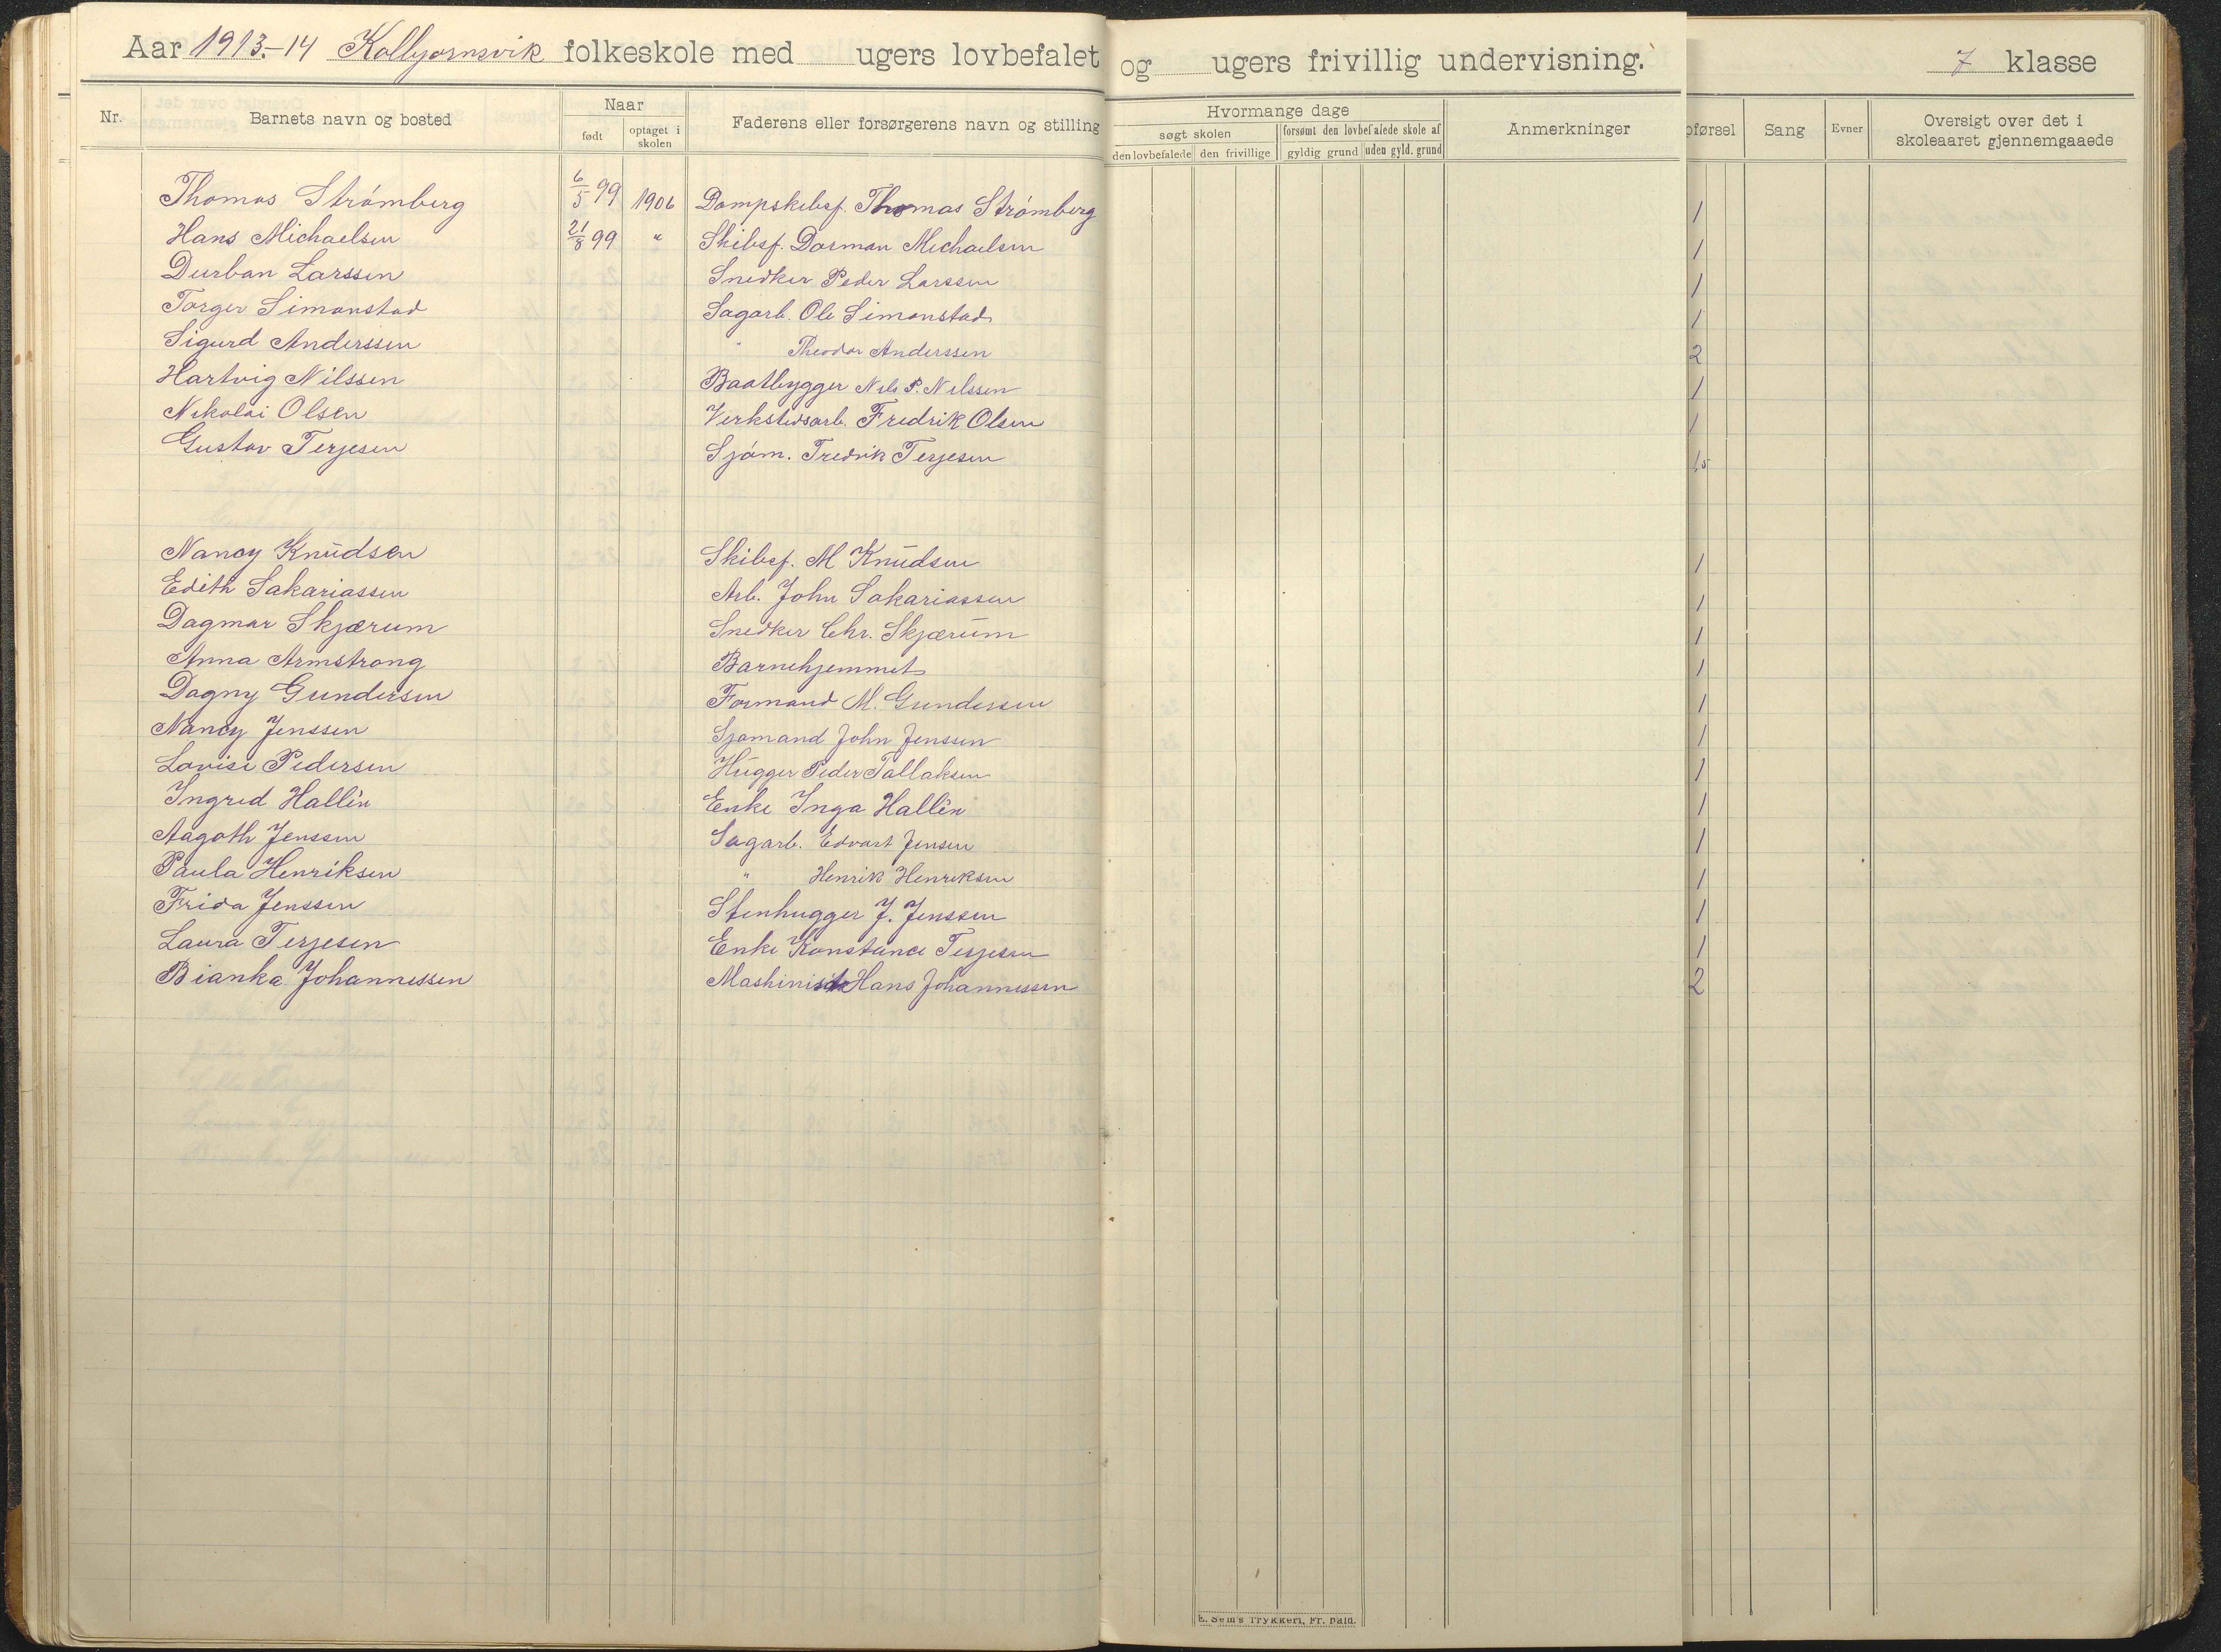 Aar 1913.-14 Kolbjornsvik folkeskole med ugers lovbefalet og ugers frivillig undervisning. 7 klasse
Nr. Barnets navn og bosted Naar født optaget i skolen Faderens eller forsørgerens navn og stilling Hvormange dage søgt skolen den lovbefalede den frivillige forsømt den lovbefalede skole af gyldig grund uden gyld. grund Anmerkninger pførsel Sang Evner Oversigt over det i skoleaaret gjennemgaaede
Thomas Strömberg 6/5 99 1906 Dampskibsf. Thomas Strömberg 1
Hans Michaelsen 21/8 99 " Skibsf. Dorman Michaelsen 1
Durban Larssen Snedker Peder Larssen 1
Torger Simonstad Sagarb. Ole Simonstad 1
Sigurd Anderssen " Theodor Anderssen 2
Hartvig Nilssen Baatbygger Nils P. Nilssen 1
Nikolai Olsen Verkstedsarb. Fredrik Olsen 1
Gustav Terjesen Sjöm. Fredrik Terjesen 1,5
Nancy Knudsen Skibsf. M Knudsen 1
Edith Sakariassen Arb. John Sakariassen 1
Dagmar Skjærum Snedker Chr. Skjærum 1
Anna Armstrong Barnehjemmet 1
Dagny Gundersen Formand M. Gundersen 1
Nancy Jenssen Sjømand John Jenssen 1
Lovise Pedersen Hugger Peder Tallaksen 1
Ingrid Hallén Enke Inga Hallén 1
Aagoth Jenssen Sagarb. Edvart Jensen 1
Paula Henriksen " Henrik Henriksen 1
Frida Jenssen Stenhugger J. Jenssen 1
Laura Terjesen Enke Konstance Terjesen 1
Bianka Johannessen Mashinist Hans Johannessen 2
E. Sem's Trykkeri, Fr. hald.